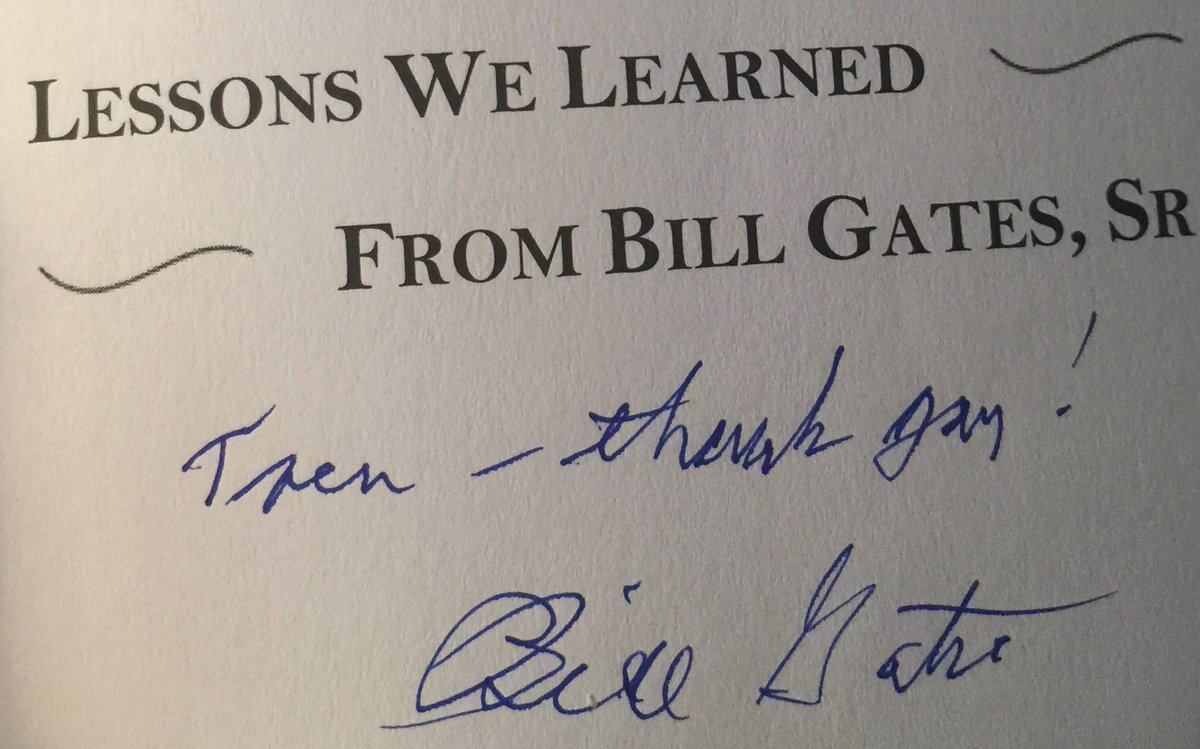 LESSONS WE LEARNED
FROM BILL GATES, SR
Tren – thank you!
Bill Gates